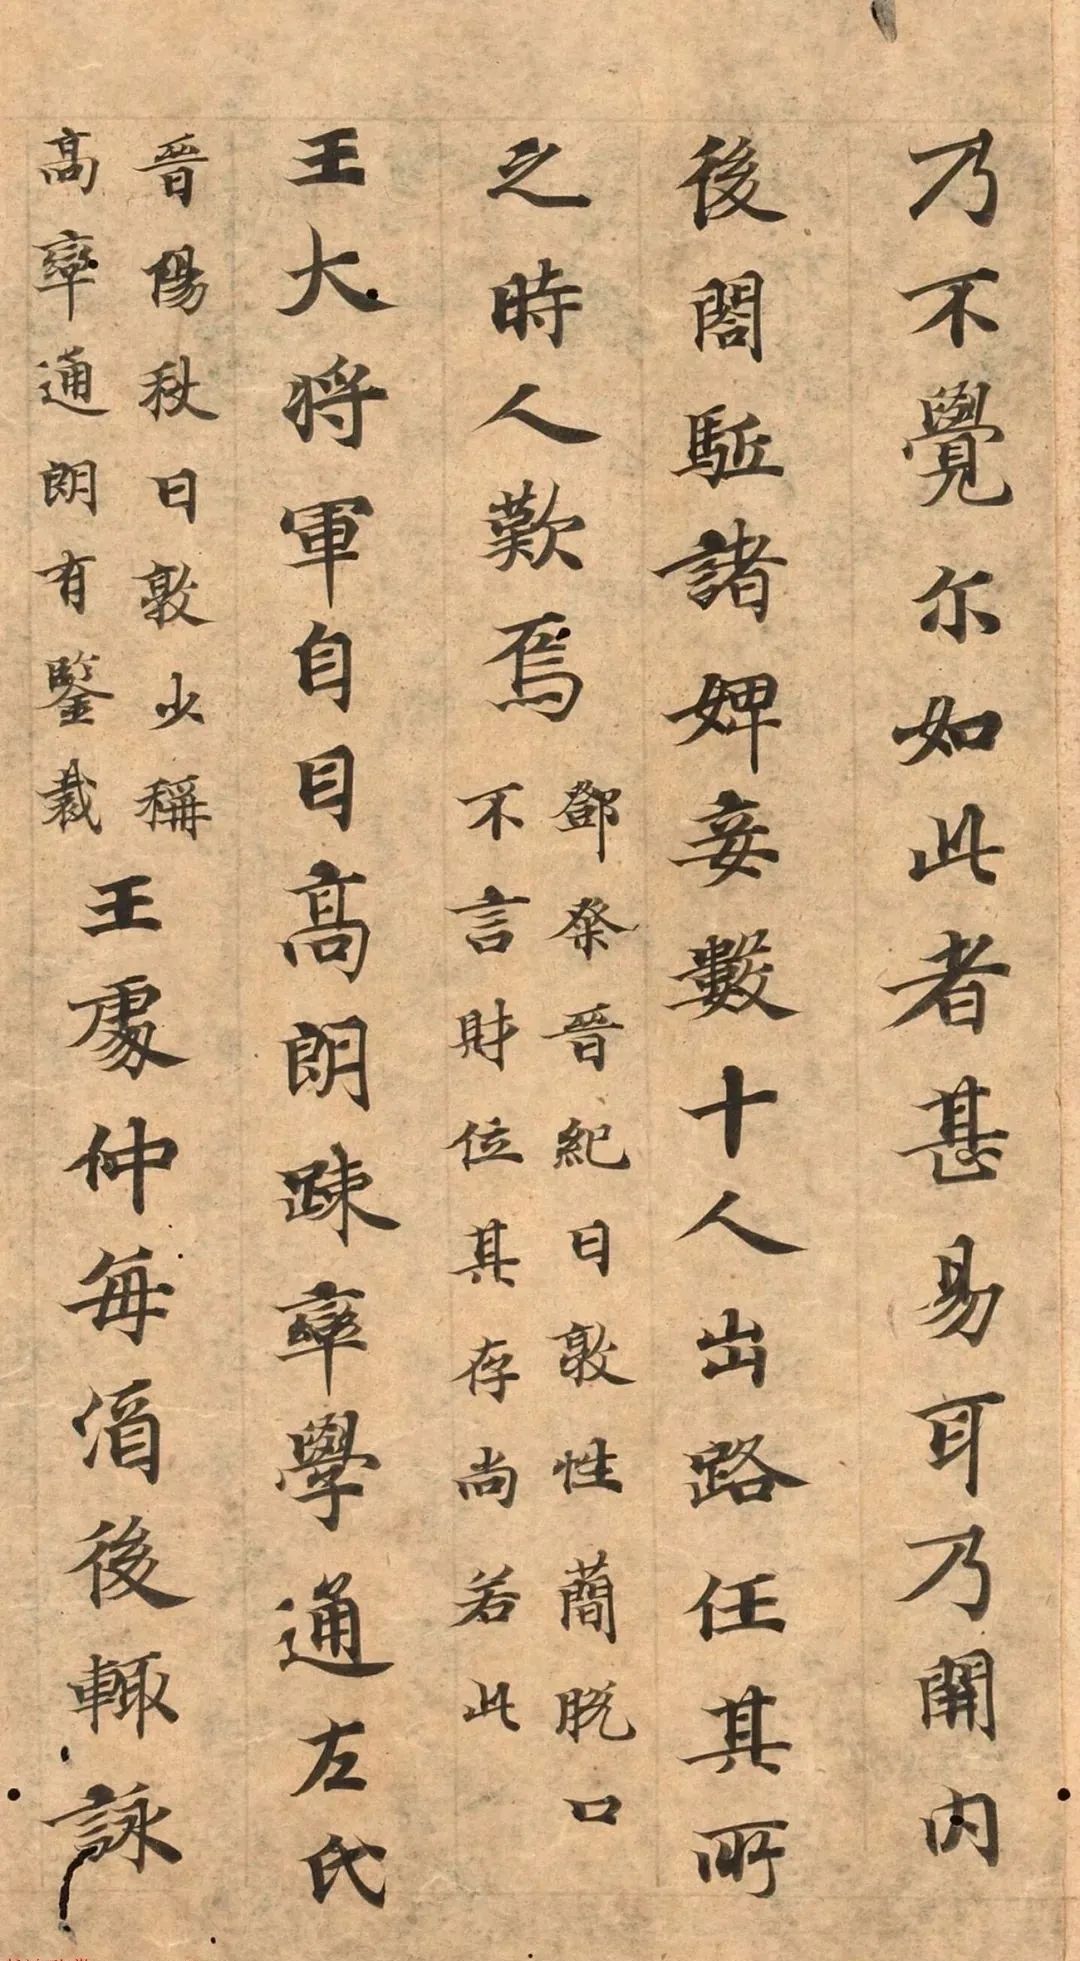 乃不覺尓如此者甚易耳乃開内
後閤駈諸婢妾數十人出路任其所
之時人歎焉
鄧粲晋紀曰敦性蕳脱口
不言財位其存尚若此
王大将軍自目高朗踈率學通左氏
晋陽秋曰敦少稱
高率通朗有鑒裁
王處仲每酒後輙詠